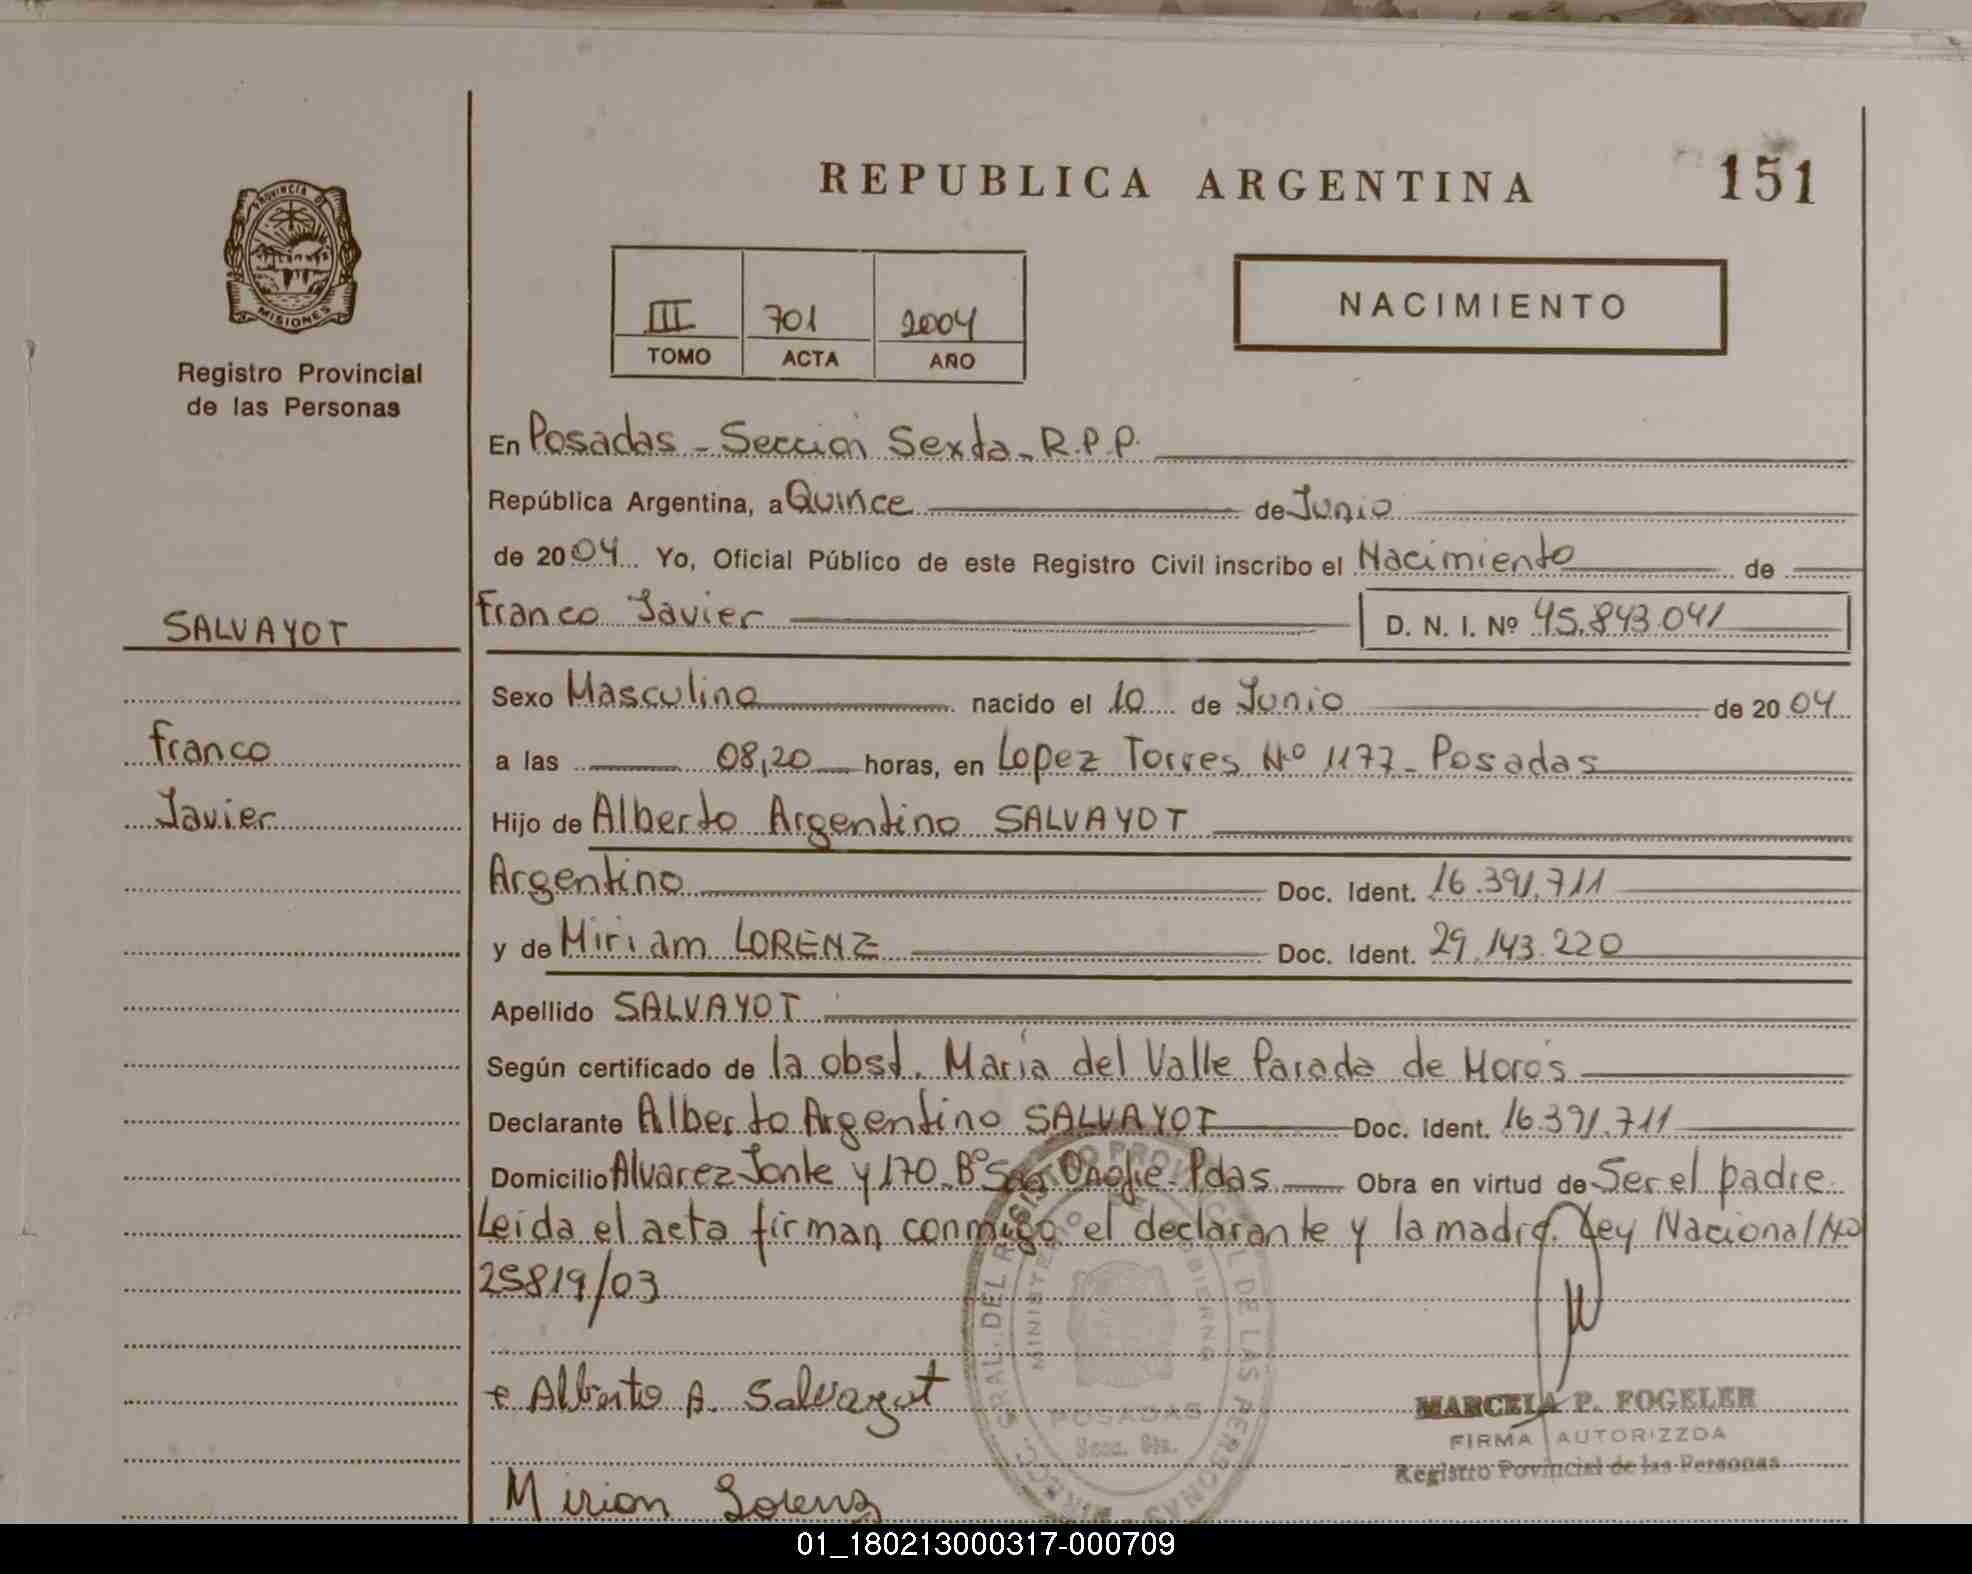 REPUBLICA ARGENTINA
151
PROVINCIA DE
MISIONES
Registro Provincial
de las Personas
III 701 2004
TOMO ACTA AÑO
NACIMIENTO
En Posadas - Sección Sexta - R.P.P.
República Argentina, a Quince de Junio
de 2004 Yo, Oficial Público de este Registro Civil inscribo el Nacimiento de
Franco Javier D. N. I. Nº 45.843.041
SALVAYOT
Franco
Javier
Sexo Masculino nacido el 10 de Junio de 2004
a las 08,20 horas, en Lopez Torres Nº 1177 - Posadas
Hijo de Alberto Argentino SALVAYOT
Argentino Doc. Ident. 16.391.711
y de Miriam LORENZ Doc. Ident. 29.143.220
Apellido SALVAYOT
Según certificado de la obst. María del Valle Parada de Morós
Declarante Alberto Argentino SALVAYOT Doc. Ident. 16.391.711
Domicilio Alvarez Jonte y 170 - Bº San Onofre - Pdas Obra en virtud de Ser el padre
Leída el acta firman conmigo el declarante y la madre. Ley Nacional Nº
25819/03
Alberto A. Salvayot
MARCELA P. FOGELER
FIRMA AUTORIZZDA
Registro Povincial de las Personas
Mirion Lorenz
POSADAS
Secc. 6ta.
01_180213000317-000709